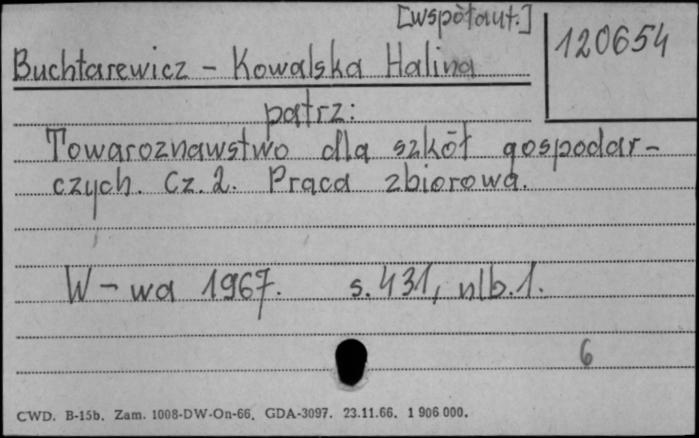 [współaut.]
120654
Buchtarewicz - Kowalska Halina
patrz:
Towaroznawstwo dla szkół gospodar-
czych. Cz. 2. Praca zbiorowa.
W-wa 1967. s. 431, nlb. 1.
6
CWD. B-15b. Zam. 1008-DW-On-66. GDA-3097. 23.11.66. 1 906 000.